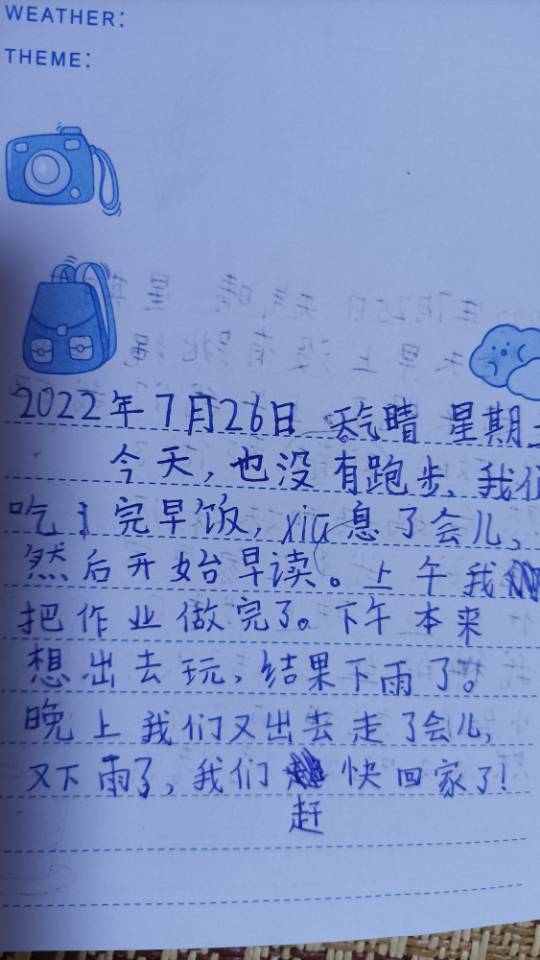 WEATHER:
THEME:
2022年7月26日 天气晴 星期
今天，也没有跑步、我们
吃完早饭，xiu息了会儿、
然后开始早读。上午我
把作业做完了。下午本来
想出去玩、结果下雨了。
晚上我们又出去走了会儿，
又下雨了，我们赶快回家了！